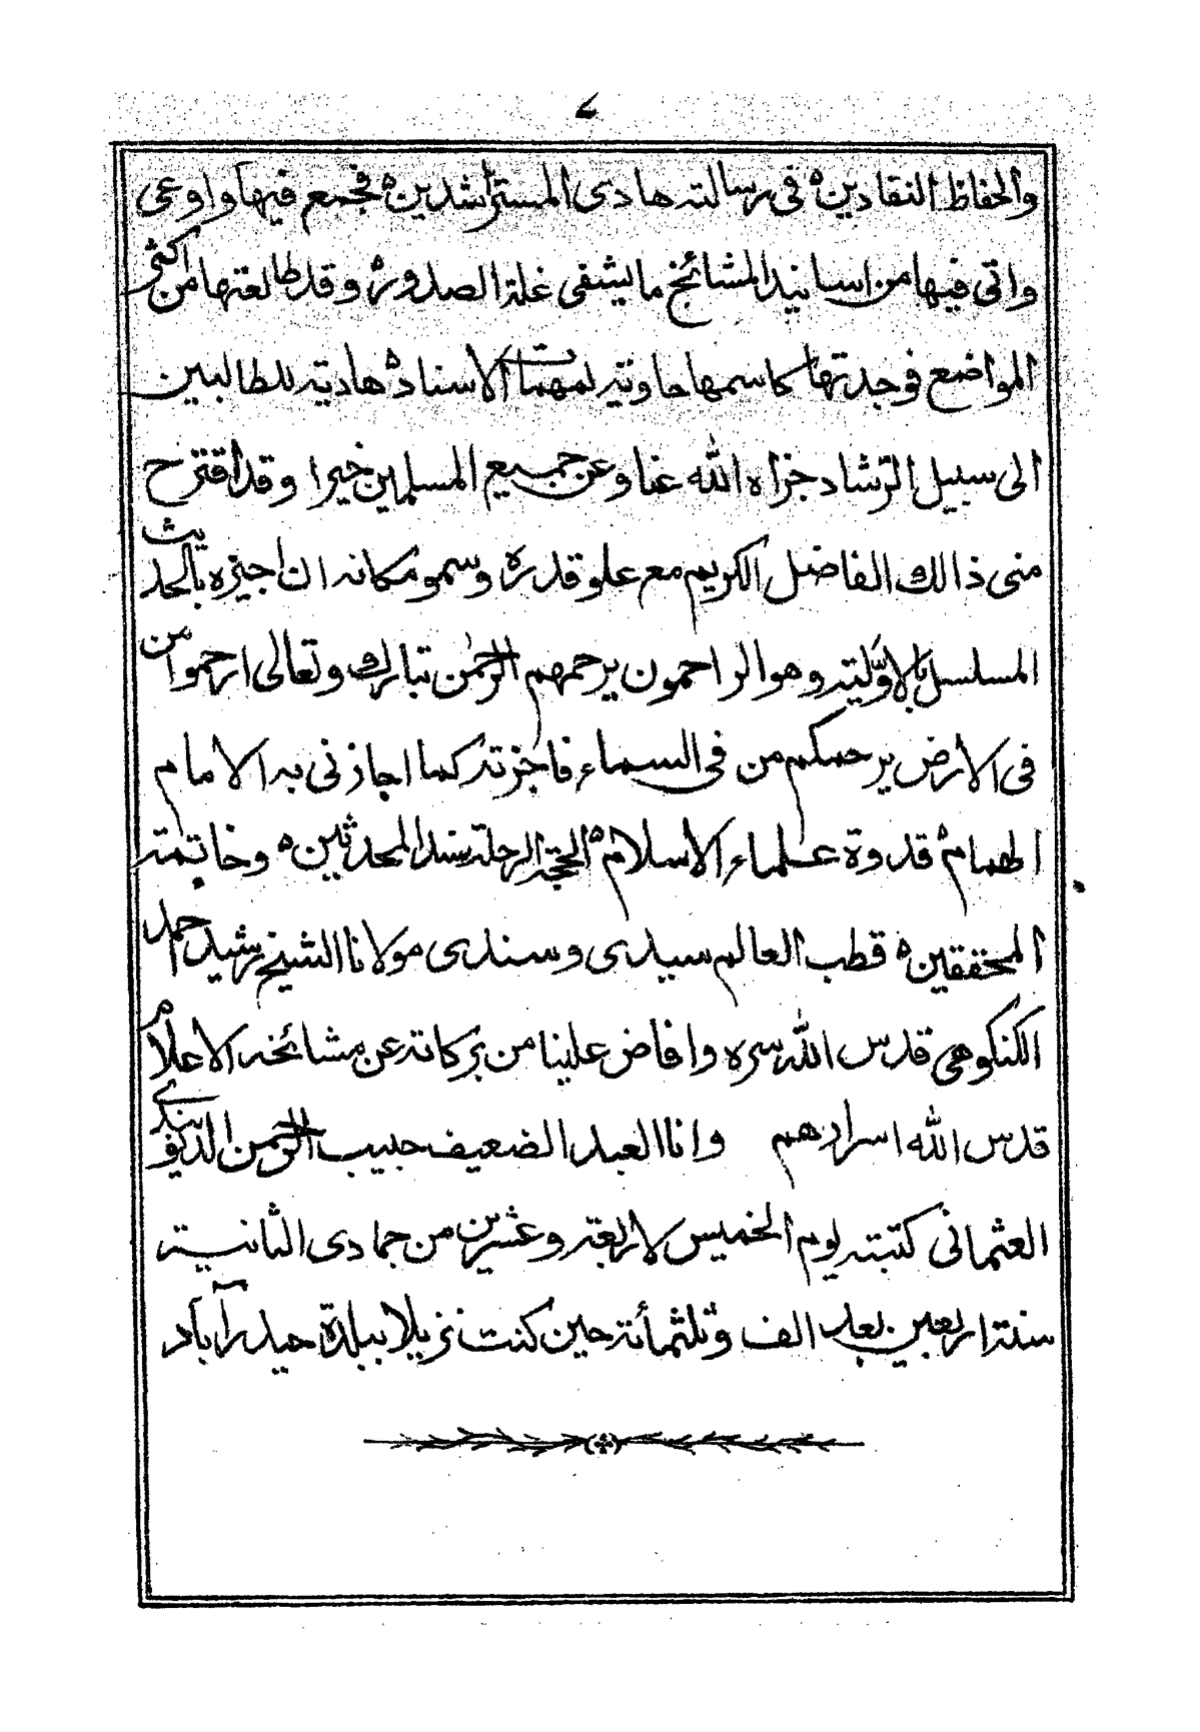 والحفاظ النقادين ه فى رسالته هادى المسترشدين ه فجمع فيها واوعى
واتى فيها من اسانيد المشائخ ما يشفى غلة الصدور ه وقد طالعتها من اكثر
المواضع فوجدتها كاسمها حاوية لمهمات الاسناد ه هادية للطالبين
الى سبيل الرّشاد جزاه الله عنا وعن جميع المسلمين خيرا وقد اقترح
منى ذالك الفاضل الكريم مع علو قدره وسمو مكانه ان اجيزه بالحديث
المسلسل بالاوّلية وهو الراحمون يرحمهم الرحمٰن تبارك وتعالى ارحموا من
فى الارض يرحمكم من فى السماء فاجزته كما اجازنى به الامام
الهمام ه قدوة علماء الاسلام ه الحجة الرحلة سند المحدثين ه وخاتمة
المحققين ه قطب العالم سيدى وسندى مولانا الشيخ رشيد احمد
الكنكوهى قدس الله سره وافاض علينا من بركاته عن مشائخه الاعلام
قدس الله اسرارهم وانا العبد الضعيف حبيب الرحمن الديوبندے
العثمانى كتبته يوم الخميس لاربعة وعشرين من جمادى الثانية
سنة اربعين بعد الف وثلثمأئة حين كنت نزيلا ببلدة حيدرآباد